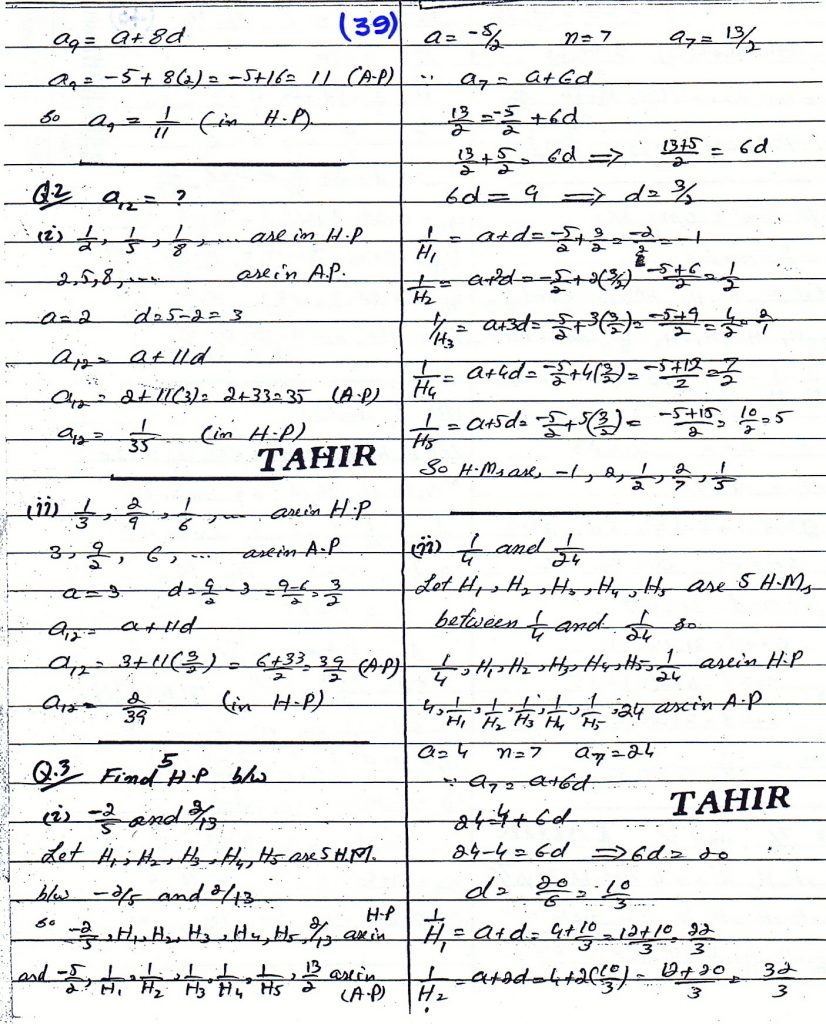 (39)
a₉ = a+8d
a₉ = -5+8(2) = -5+16 = 11 (A.P)
so a₉ = 1/11 (in H.P).
Q.2 a₁₂ = ?
(i) 1/2, 1/5, 1/8, .... are in H.P
2,5,8,.... are in A.P.
a=2 d=5-2=3
a₁₂ = a+11d
a₁₂ = 2+11(3) = 2+33=35 (A.P)
a₁₂ = 1/35 (in H.P)
TAHIR
(ii) 1/3, 2/9, 1/6, .... are in H.P
3, 9/2, 6, ... are in A.P
a=3 d=9/2-3 = 9-6/2 = 3/2
a₁₂ = a+11d
a₁₂ = 3+11(3/2) = 6+33/2 = 39/2 (A.P)
a₁₂ = 2/39 (in H.P)
Q.3 Find 5 H.P b/w
(i) -2/5 and 2/13
Let H₁, H₂, H₃, H₄, H₅ are 5 H.M.
b/w -2/5 and 2/13
so -2/5, H₁, H₂, H₃, H₄, H₅, 2/13 are in H.P
and -5/2, 1/H₁, 1/H₂, 1/H₃, 1/H₄, 1/H₅, 13/2 are in (A.P)
a = -5/2 n=7 a₇ = 13/2
∵ a₇ = a+6d
13/2 = -5/2 + 6d
13/2 + 5/2 = 6d ⟹ 13+5/2 = 6d
6d = 9 ⟹ d = 3/2
1/H₁ = a+d = -5/2 + 3/2 = -2/2 = -1
1/H₂ = a+2d = -5/2 + 2(3/2) = -5+6/2 = 1/2
1/H₃ = a+3d = -5/2 + 3(3/2) = -5+9/2 = 4/2 = 2/1
1/H₄ = a+4d = -5/2 + 4(3/2) = -5+12/2 = 7/2
1/H₅ = a+5d = -5/2 + 5(3/2) = -5+15/2 = 10/2 = 5
So H.Ms are, -1, 2, 1/2, 2/7, 1/5
(ii) 1/4 and 1/24
Let H₁, H₂, H₃, H₄, H₅ are 5 H.Ms
between 1/4 and 1/24 so
1/4, H₁, H₂, H₃, H₄, H₅, 1/24 are in H.P
4, 1/H₁, 1/H₂, 1/H₃, 1/H₄, 1/H₅, 24 are in A.P
a=4 n=7 a₇=24
∵ a₇ = a+6d
24=4+6d
TAHIR
24-4=6d ⟹ 6d = 20
d = 20/6 = 10/3
1/H₁ = a+d = 4+10/3 = 12+10/3 = 22/3
1/H₂ = a+2d = 4+2(10/3) = 12+20/3 = 32/3